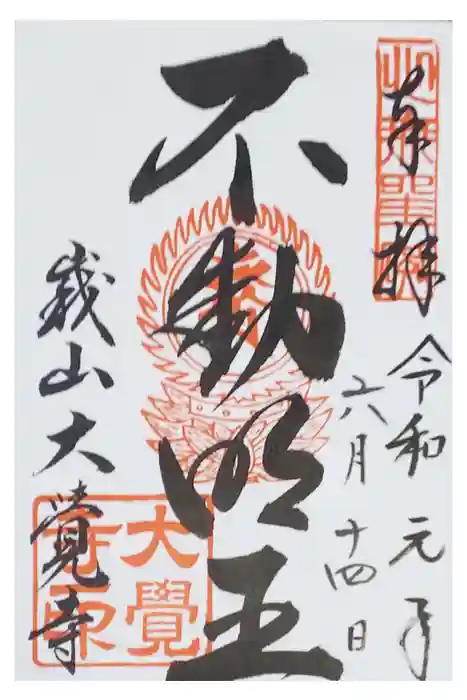 奉拝
令和元年
六月十四日
不動明王
嵯峨山大覺寺
大覺寺印